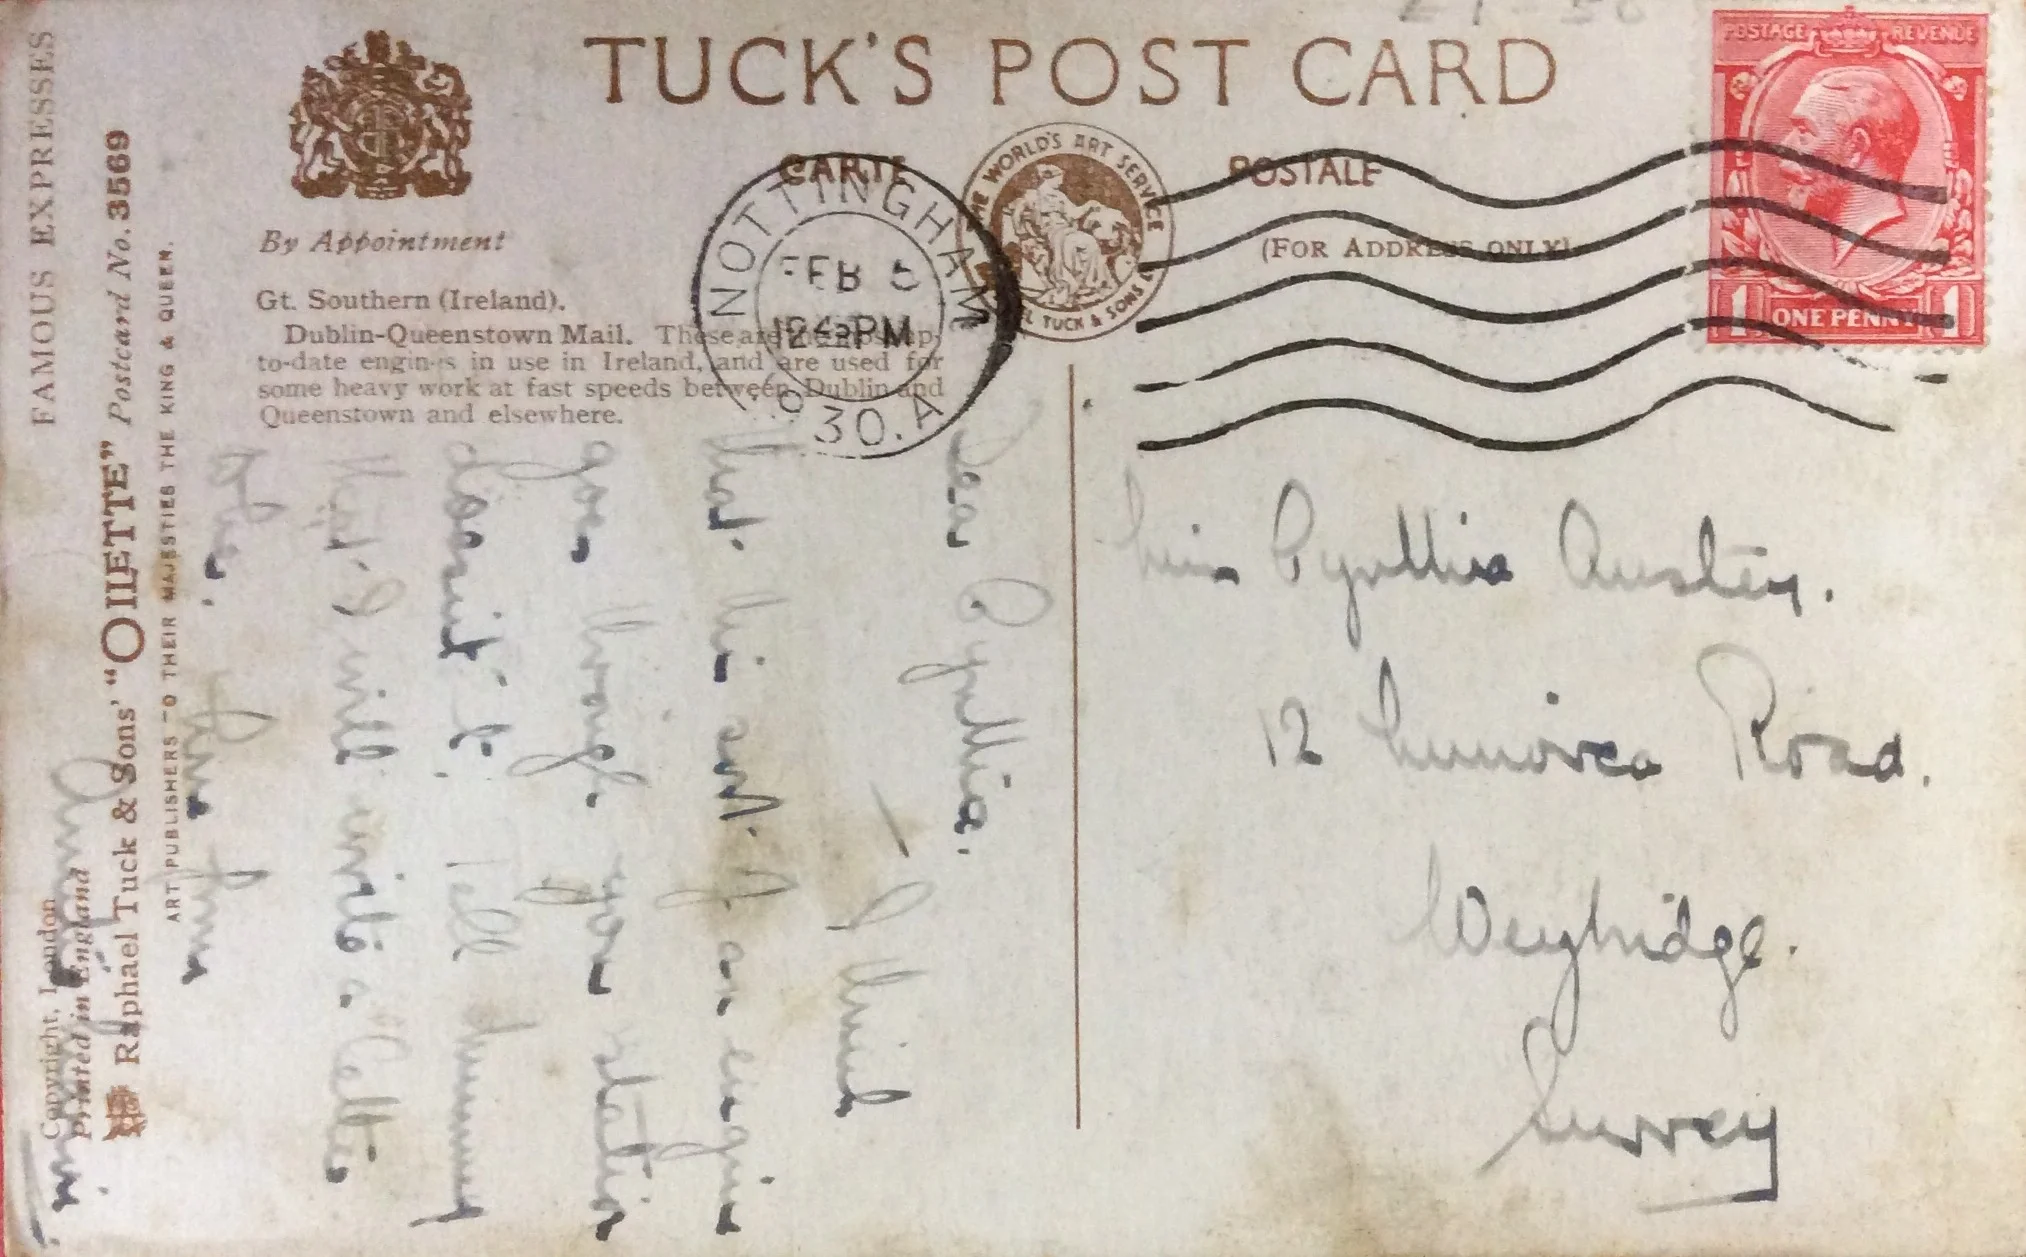 TUCK'S POST CARD
CARTE POSTALE
(FOR ADDRESS ONLY)
By Appointment
THE WORLD'S ART SERVICE
RAPHAEL TUCK & SONS
NOTTINGHAM
FEB
1245PM
30.A
POSTAGE REVENUE
1 ONE PENNY 1
Gt. Southern (Ireland).
Dublin-Queenstown Mail. These are the most up-
to-date engines in use in Ireland, and are used for
some heavy work at fast speeds between Dublin and
Queenstown and elsewhere.
FAMOUS EXPRESSES
Raphael Tuck & Sons' "OILETTE" Postcard No. 3569
ART PUBLISHERS TO THEIR MAJESTIES THE KING & QUEEN.
Copyright, London
Printed in England
Dear Cynthia.
— I think
that this sort of an engine
goes through your station
doesn't it. Tell Mummy
that I will write a letter
Miss Cynthia Austen.
12 Road.
Weybridge.
Surrey